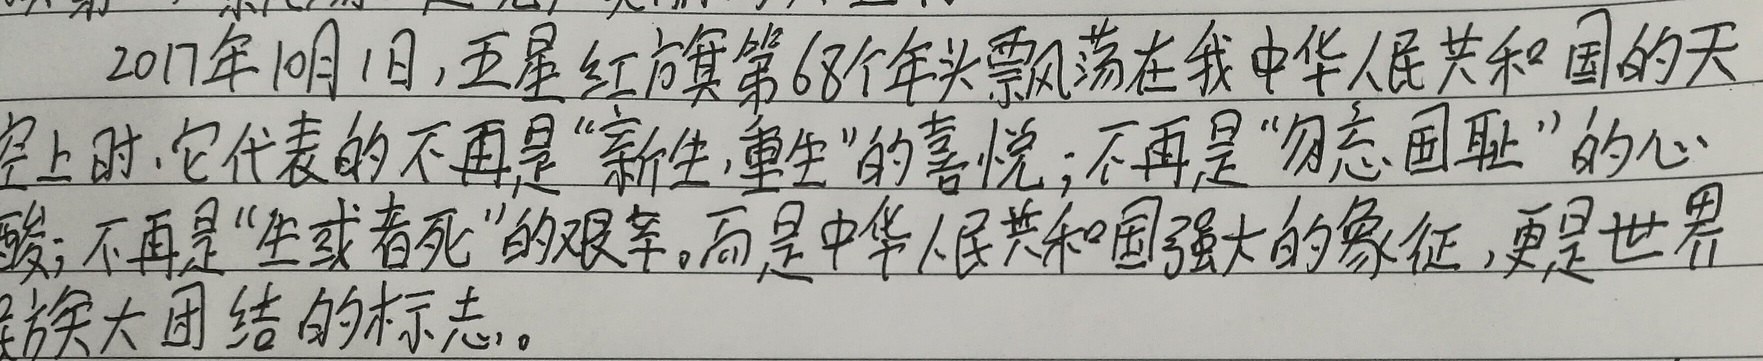 2017年10月1日,五星红旗第68个年头飘荡在我中华人民共和国的天
空上时,它代表的不再是“新生,重生”的喜悦;不再是“勿忘国耻”的心
酸;不再是“生或者死”的艰辛。而是中华人民共和国强大的象征,更是世界
民族大团结的标志。